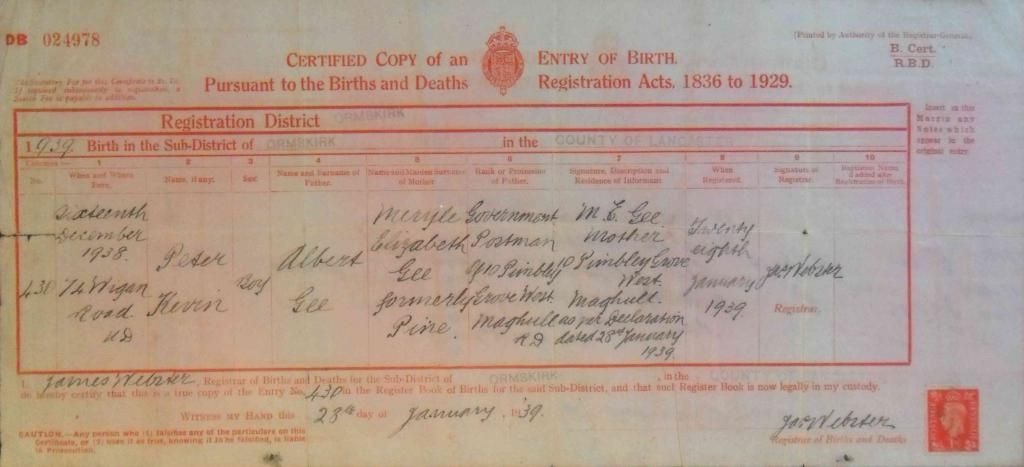 DB 024978
[Printed by Authority of the Registrar-General.]
B. Cert.
R.B.D.
CERTIFIED COPY of an ENTRY OF BIRTH.
Pursuant to the Births and Deaths Registration Acts, 1836 to 1929.
Insert in this
Margin any
Notes which
appear in the
original entry.
Registration District ORMSKIRK
1939. Birth in the Sub-District of ORMSKIRK in the COUNTY OF LANCASTER
Columns:— 1 2 3 4 5 6 7 8 9 10
No. When and Where Born. Name, if any. Sex. Name and Surname of Father. Name and Maiden Surname of Mother. Rank or Profession of Father. Signature, Description and Residence of Informant. When Registered. Signature of Registrar. Registration of Birth.
430
Sixteenth
December
1938.
74 Wigan
Road
UD
Peter
Kevin
Boy
Albert
Gee
Meryle
Elizabeth
Gee
formerly
Pine.
Government
Postman
of 10 Pimbley
Grove West
Maghull
RD
M. E. Gee
Mother
10 Pimbley Grove
West.
Maghull.
as per Declaration
dated 28th January
1939.
Twenty
eighth
January
1939.
Jas Webster
Registrar.
I, James Webster, Registrar of Births and Deaths for the Sub-District of ORMSKIRK, in the COUNTY OF
do hereby certify that this is a true copy of the Entry No. 430 in the Register Book of Births for the said Sub-District, and that such Register Book is now legally in my custody.
WITNESS MY HAND this 28th day of January, 1939.
Jas Webster
Registrar of Births and Deaths
CAUTION.—Any person who (1) falsifies any of the particulars on this
Certificate, or (2) uses it as true, knowing it to be falsified, is liable
to Prosecution.